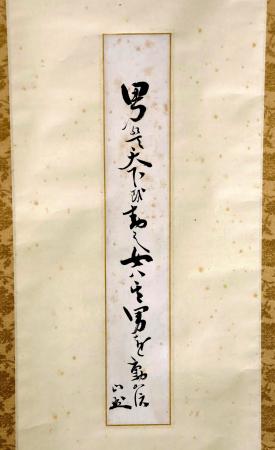 男は天下を動かし女ハ其男を動かす